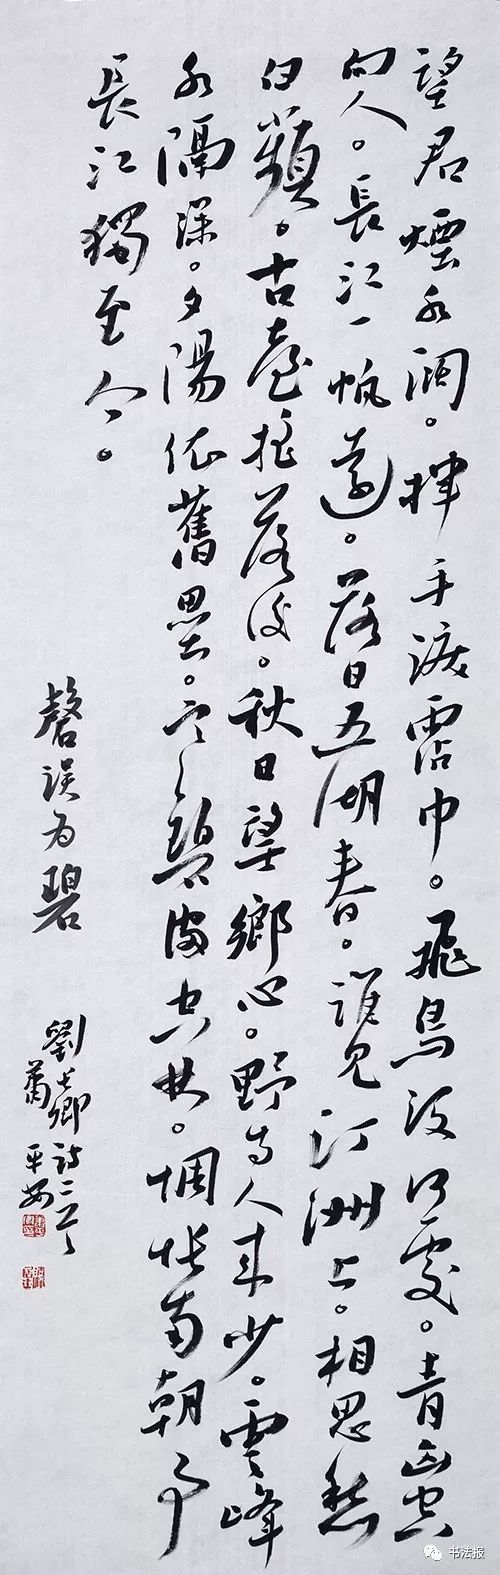 望君煙水闊。揮手淚霑巾。飛鳥沒何處。青山空
向人。長江一帆遠。落日五湖春。誰見汀洲上。相思愁
白蘋。古臺搖落後。秋日望鄉心。野寺人來少。雲峰
水隔深。夕陽依舊壘。寒碧滿空林。惆悵南朝事
長江獨至今。
磬誤為碧
劉長卿詩二首
书法报